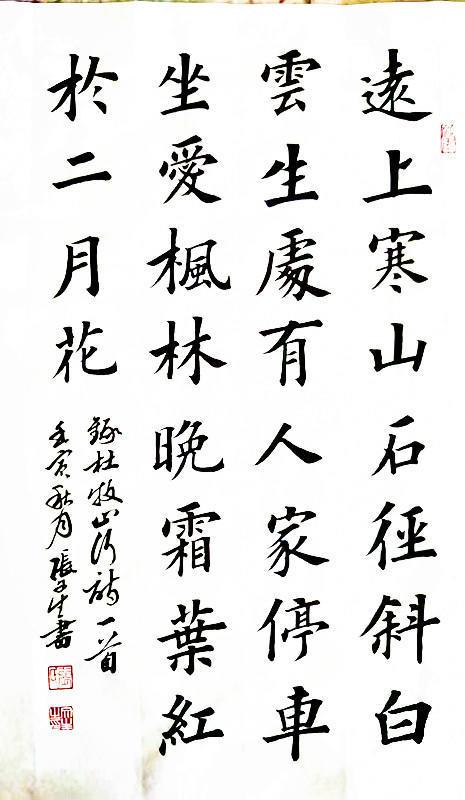 遠上寒山石徑斜白
雲生處有人家停車
坐愛楓林晚霜葉紅
於二月花
錄杜牧山行詩一首
壬寅秋月張子生書